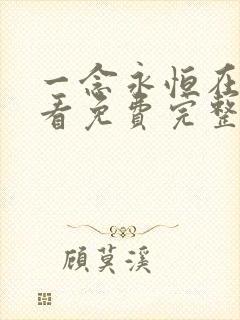 一念永恒在
看免费完整
顾莫溪